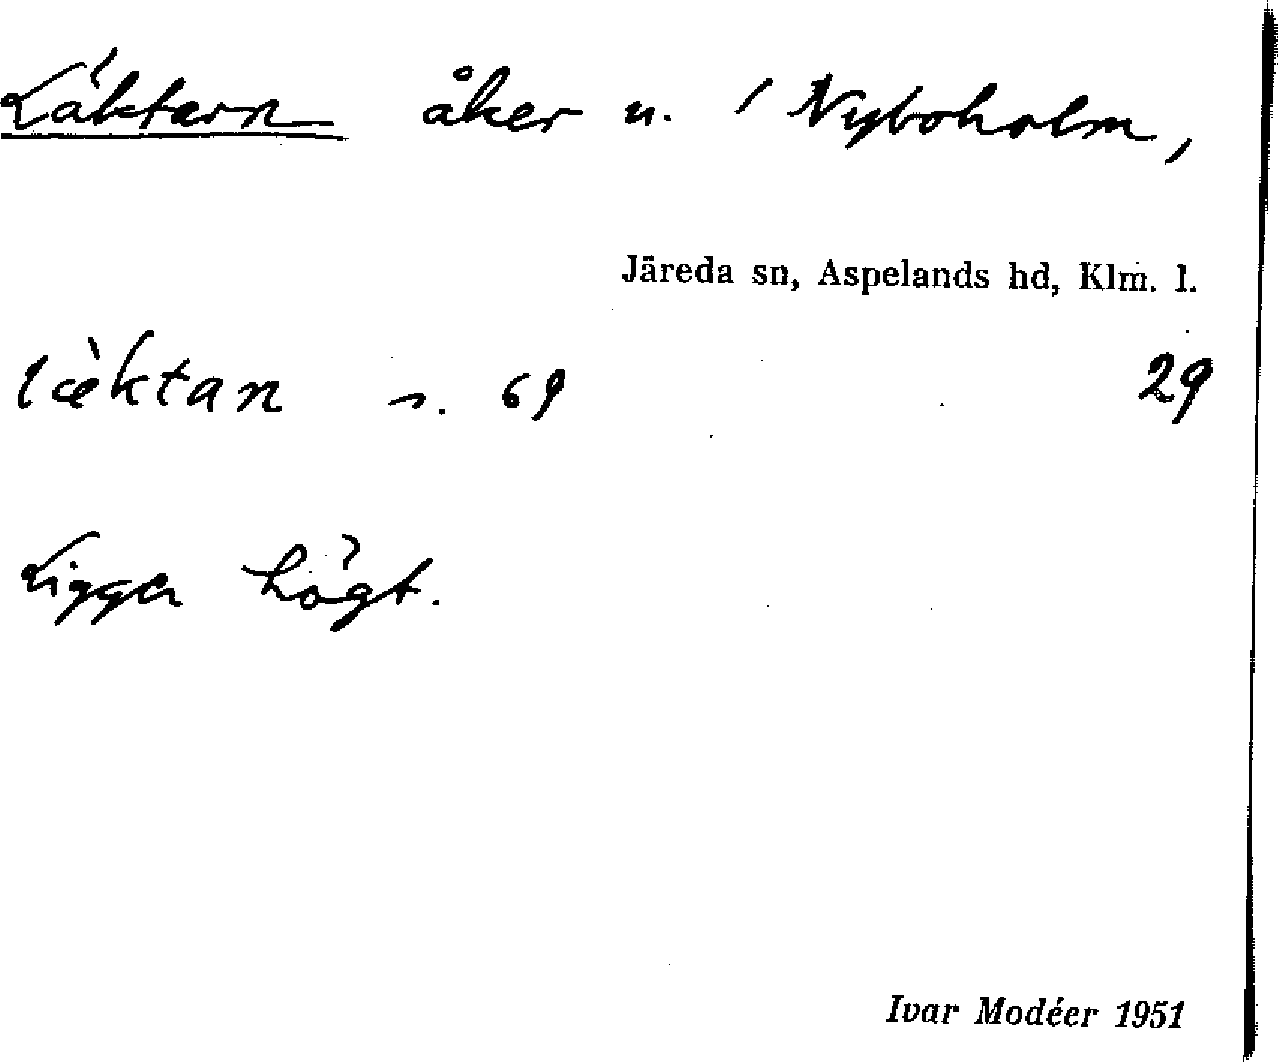 Läktarn åker u. / Nyboholm,
Järeda sn, Aspelands hd, Klm. l.
læ̀ktan s. 69 29
Ligger högt.
Ivar Modéer 1951